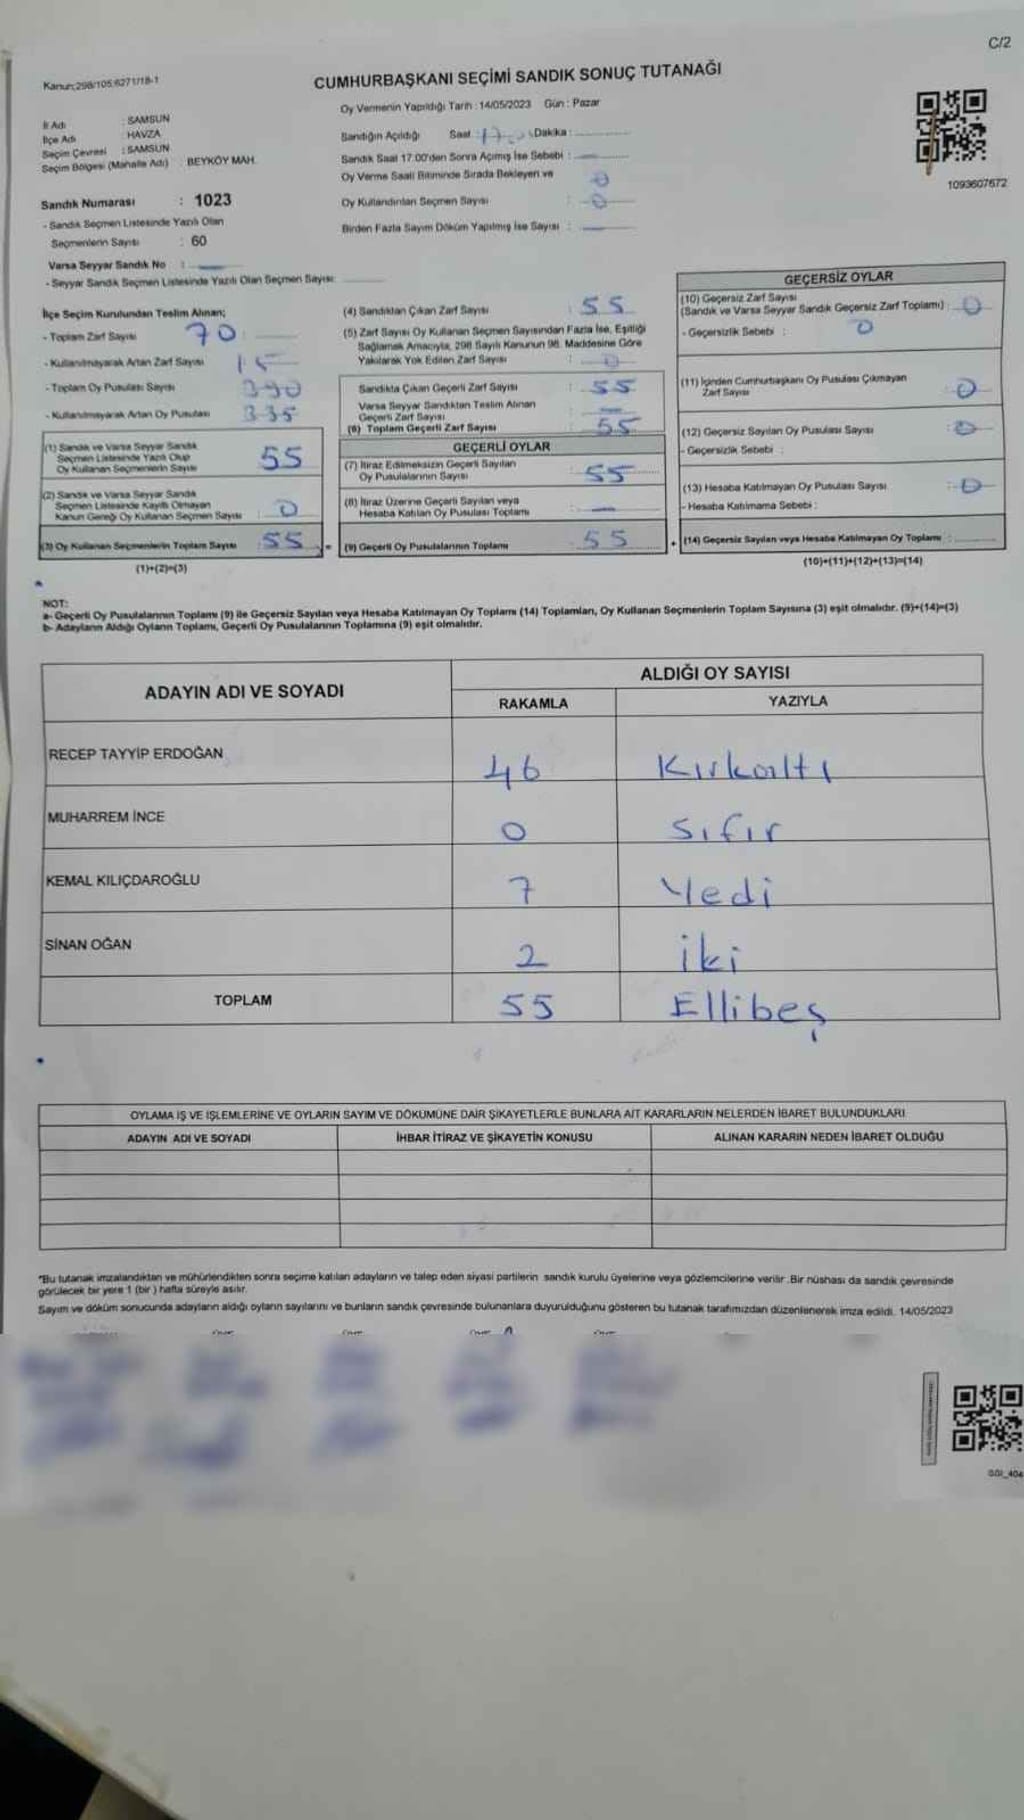 C/2
Kanun:298/105;6271/18-1
CUMHURBAŞKANI SEÇİMİ SANDIK SONUÇ TUTANAĞI
Oy Vermenin Yapıldığı Tarih : 14/05/2023 Gün : Pazar
İl Adı : SAMSUN
İlçe Adı : HAVZA
Seçim Çevresi : SAMSUN
Seçim Bölgesi (Mahalle Adı) : BEYKÖY MAH.
Sandığın Açıldığı Saat : 17 Dakika :
Sandık Saat 17.00'den Sonra Açımış İse Sebebi : —
Oy Verme Saati Bitiminde Sırada Bekleyen ve 0
Oy Kullandırılan Seçmen Sayısı : 0
Birden Fazla Sayım Döküm Yapılmış İse Sayısı : —
1093607672
Sandık Numarası : 1023
- Sandık Seçmen Listesinde Yazılı Olan
Seçmenlerin Sayısı : 60
Varsa Seyyar Sandık No : —
- Seyyar Sandık Seçmen Listesinde Yazılı Olan Seçmen Sayısı:
İlçe Seçim Kurulundan Teslim Alınan;
- Toplam Zarf Sayısı 70
- Kullanılmayarak Artan Zarf Sayısı 15
- Toplam Oy Pusulası Sayısı 390
- Kullanılmayarak Artan Oy Pusulası 335
(1) Sandık ve Varsa Seyyar Sandık
Seçmen Listesinde Yazılı Olup
Oy Kullanan Seçmenlerin Sayısı 55
(2) Sandık ve Varsa Seyyar Sandık
Seçmen Listesinde Kayıtlı Olmayan
Kanun Gereği Oy Kullanan Seçmen Sayısı : 0
(3) Oy Kullanan Seçmenlerin Toplam Sayısı : 55
(1)+(2)=(3)
(4) Sandıktan Çıkan Zarf Sayısı : 55
(5) Zarf Sayısı Oy Kullanan Seçmen Sayısından Fazla İse, Eşitliği
Sağlamak Amacıyla, 298 Sayılı Kanunun 98. Maddesine Göre
Yakılarak Yok Edilen Zarf Sayısı : 0
Sandıkta Çıkan Geçerli Zarf Sayısı : 55
Varsa Seyyar Sandıktan Teslim Alınan
Geçerli Zarf Sayısı : —
(6) Toplam Geçerli Zarf Sayısı : 55
GEÇERLİ OYLAR
(7) İtiraz Edilmeksizin Geçerli Sayılan
Oy Pusulalarının Sayısı : 55
(8) İtiraz Üzerine Geçerli Sayılan veya
Hesaba Katılan Oy Pusulası Toplamı : —
(9) Geçerli Oy Pusulalarının Toplamı 55
GEÇERSİZ OYLAR
(10) Geçersiz Zarf Sayısı
(Sandık ve Varsa Seyyar Sandık Geçersiz Zarf Toplamı) : 0
- Geçersizlik Sebebi : 0
(11) İçinden Cumhurbaşkanı Oy Pusulası Çıkmayan
Zarf Sayısı : 0
(12) Geçersiz Sayılan Oy Pusulası Sayısı : 0
- Geçersizlik Sebebi :
(13) Hesaba Katılmayan Oy Pusulası Sayısı : 0
- Hesaba Katılmama Sebebi :
(14) Geçersiz Sayılan veya Hesaba Katılmayan Oy Toplamı :
(10)+(11)+(12)+(13)=(14)
NOT:
a- Geçerli Oy Pusulalarının Toplamı (9) ile Geçersiz Sayılan veya Hesaba Katılmayan Oy Toplamı (14) Toplamları, Oy Kullanan Seçmenlerin Toplam Sayısına (3) eşit olmalıdır. (9)+(14)=(3)
b- Adayların Aldığı Oyların Toplamı, Geçerli Oy Pusulalarının Toplamına (9) eşit olmalıdır.
ADAYIN ADI VE SOYADI
ALDIĞI OY SAYISI
RAKAMLA YAZIYLA
RECEP TAYYİP ERDOĞAN 46 Kırkaltı
MUHARREM İNCE 0 Sıfır
KEMAL KILIÇDAROĞLU 7 Yedi
SİNAN OĞAN 2 iki
TOPLAM 55 Ellibeş
OYLAMA İŞ VE İŞLEMLERİNE VE OYLARIN SAYIM VE DÖKÜMÜNE DAİR ŞİKAYETLERLE BUNLARA AİT KARARLARIN NELERDEN İBARET BULUNDUKLARI
ADAYIN ADI VE SOYADI İHBAR İTİRAZ VE ŞİKAYETİN KONUSU ALINAN KARARIN NEDEN İBARET OLDUĞU
"Bu tutanak imzalandıktan ve mühürlendikten sonra seçime katılan adayların ve talep eden siyasi partilerin sandık kurulu üyelerine veya gözlemcilerine verilir. Bir nüshası da sandık çevresinde
görülecek bir yere 1 (bir) hafta süreyle asılır.
Sayım ve döküm sonucunda adayların aldığı oyların sayılarını ve bunların sandık çevresinde bulunanlara duyurulduğunu gösteren bu tutanak tarafımızdan düzenlenerek imza edildi. 14/05/2023